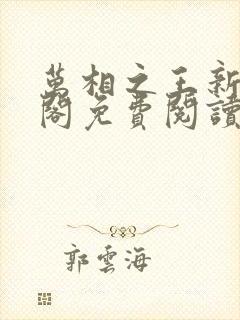 萬相之王新
閣免費閱讀
郭雲海